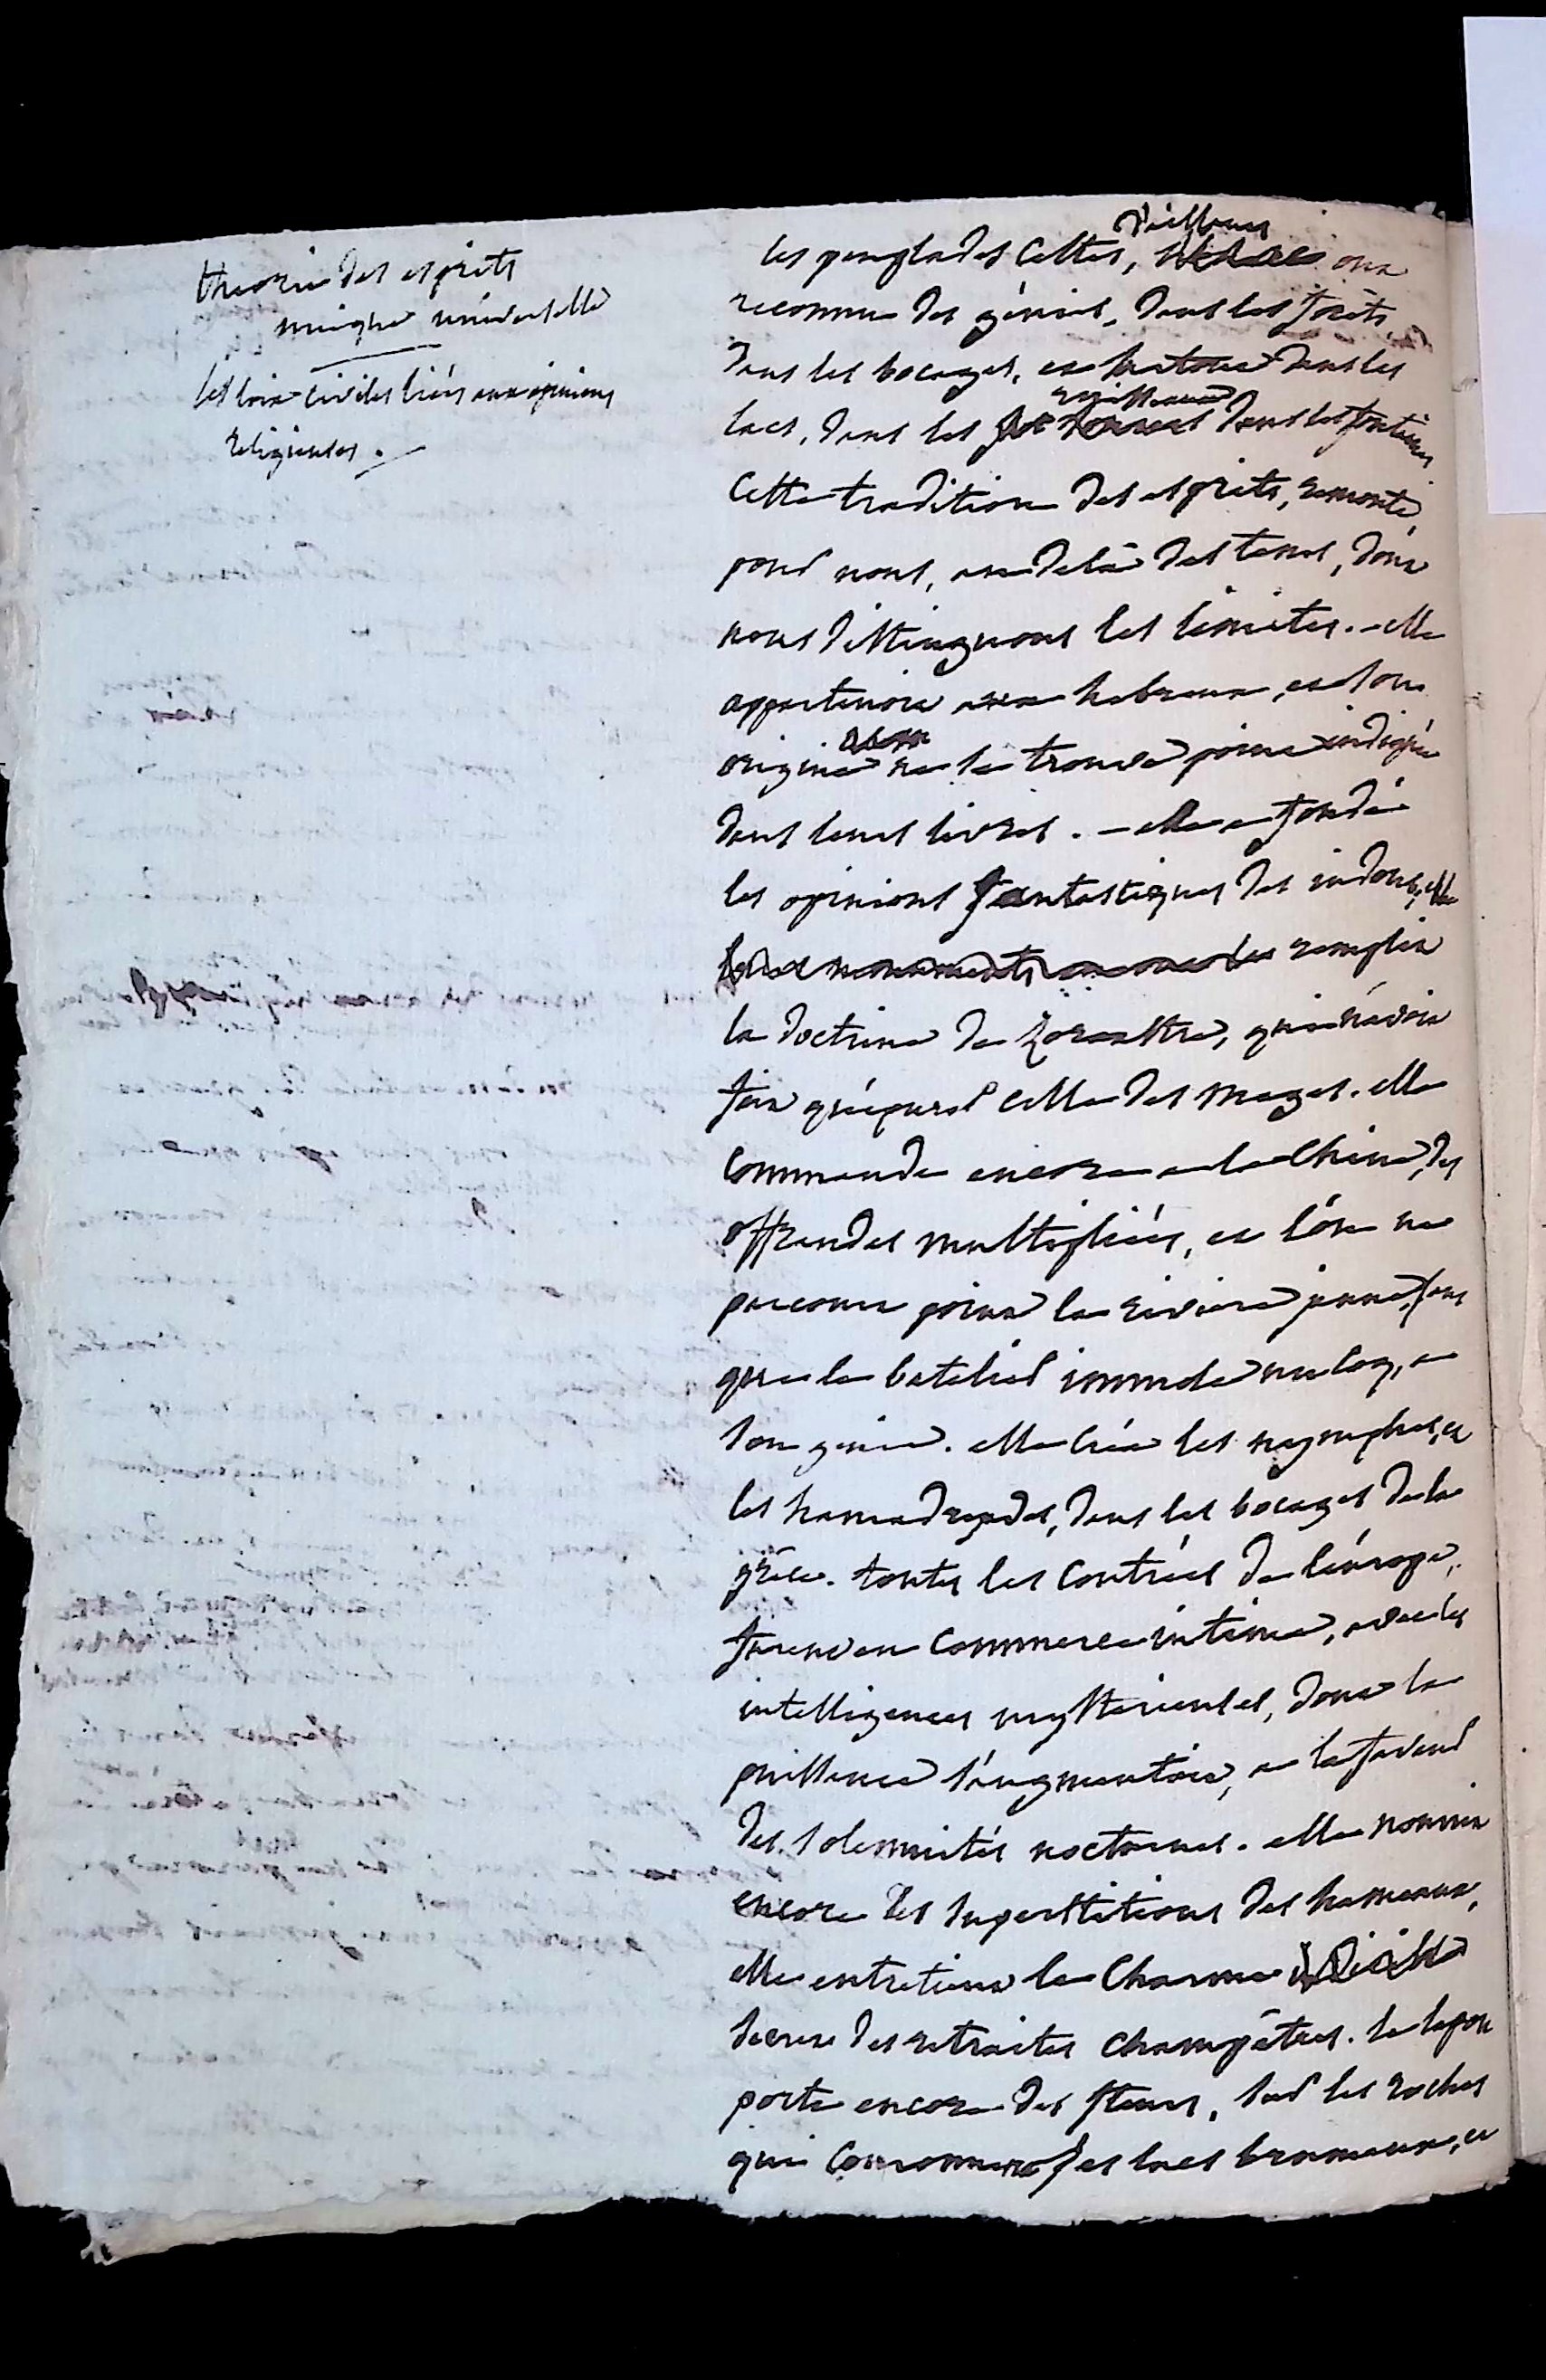 theorie des esprits
unique universelle
les loix civiles liées aux opinions
religieuses.
d'ailleurs
les peuplades Celtes, ont
reconnu des génies, dans les forêts,
dans les bocages, et surtout dans les
ruisseaux
lacs, dans les torrens dans les fontaines
Cette tradition des esprits, remonte,
pour nous, au dela des tems, dont
nous distinguons les limites. - elle
appartenoit aux hebreux, et son
origine ne se trouve point indiquée
dans leurs livres. - elle a fondé
les opinions fantastiques des indous, elle
remplit
la doctrine de Zoroastre, qui n'avoit
fait qu'épurer celle des mages. elle
commande encore a la Chine, des
offrandes multipliées, et l'on ne
parcourt point la riviere jaune, sans
que le batelier immole un coq, a
son genie. elle créa les nymphes, et
les hamadryades, dans les bocages de la
grèce. toutes les contrées de l'europe,
furent en commerce intime, avec les
intelligences mysterieuses, dont la
puissance s'augmentoit, a la faveur
des solemnités nocturnes. elle nourrit
encore les superstitions des hameaux,
elle entretient le Charme
secret des retraites champêtres. le lapon
porte encore des fleurs, sur les roches
qui couronnent ses lacs brumeux, et